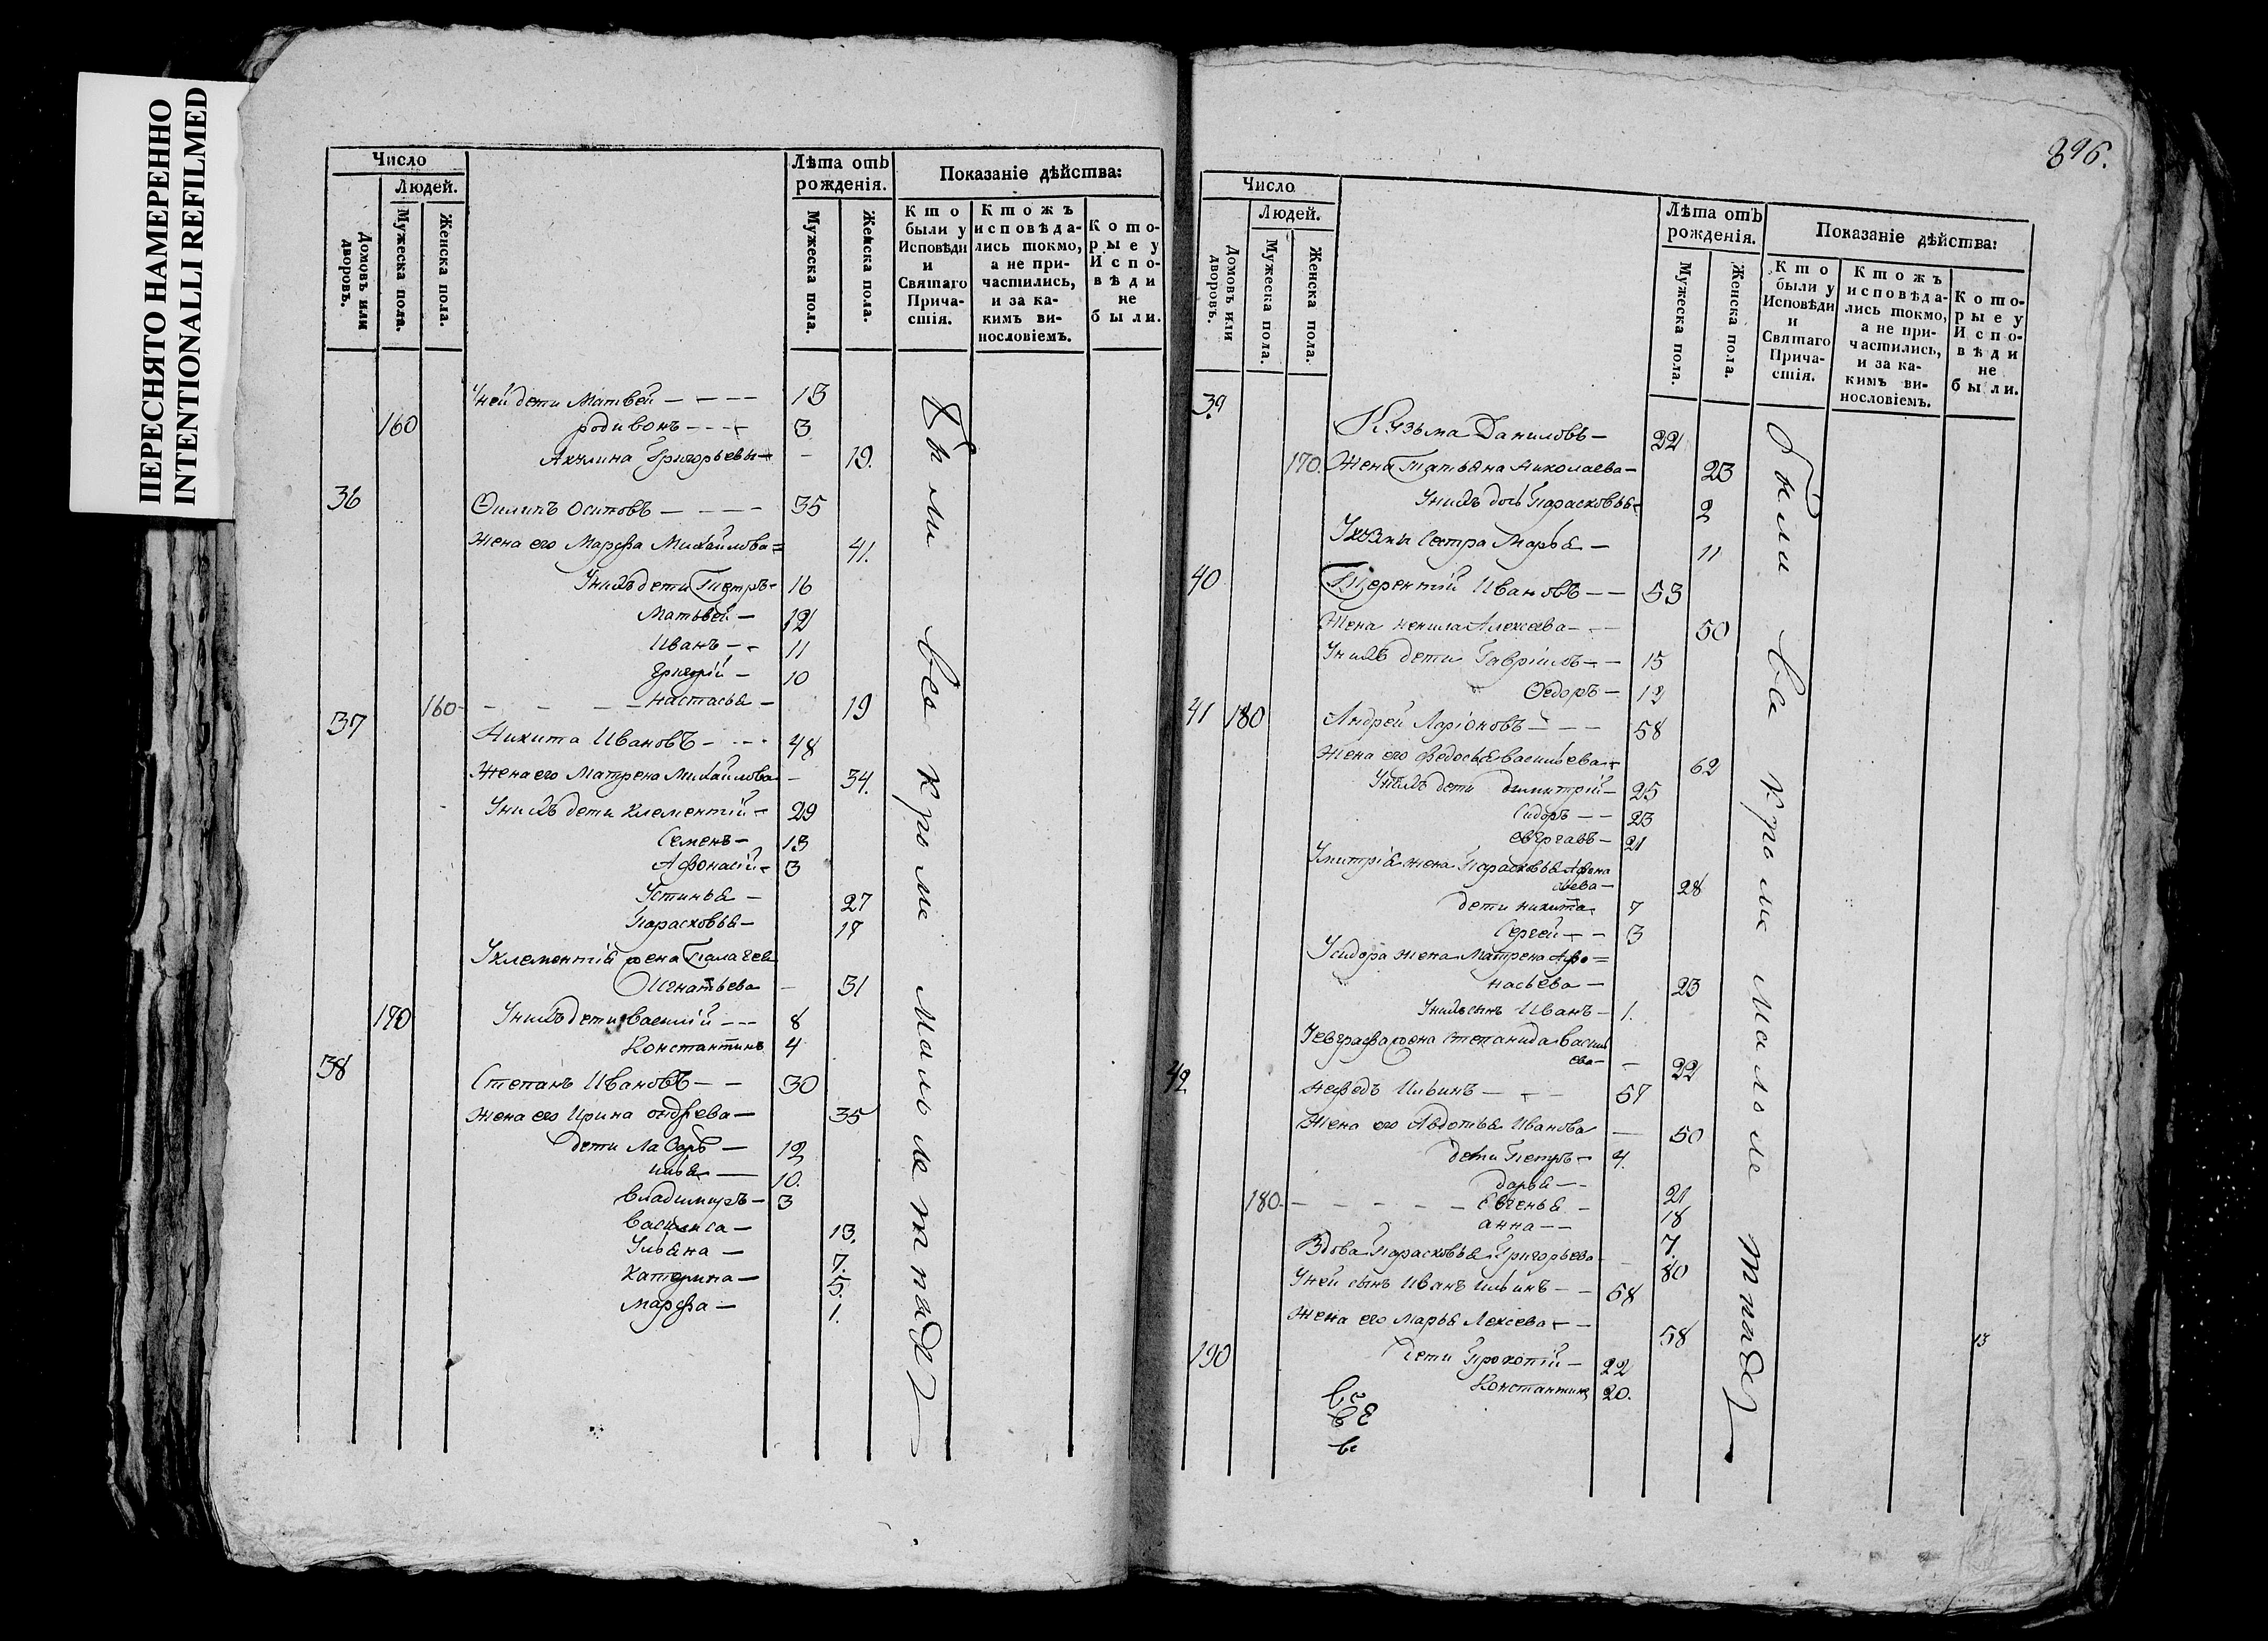 ПЕРЕСНЯТО НАМЕРЕННО
INTENTIONALLI REFILMED
Число
Людей.
Домовъ или дворовъ.
Мужеска пола.
Женска пола.
Лѣта отъ рожденія.
Мужеска пола.
Женска пола.
Показаніе дѣйства:
Кто были у Исповѣди и Святаго Причастія.
Ктожъ исповѣдались токмо, а не причастились, и за какимъ винословіемъ.
Которые у Исповѣди не были.
Уней дети Матвей - - - - 13
160 родивонъ - - - 3
Акилина Григорьева - - 19.
36 Филипъ Осиповъ - - - - 35
Жена его Марфа Михайлова = 41.
Унихъ дети Петръ - 16
Матьвей - 12
Иванъ - - 11
Григорій - 10
160 - - - - Настасья - 19
37 Никита Ивановъ - - - 48
Жена его Матрена Михайлова - 34.
Унихъ дети Клементій - 29
Семенъ - 13
Афонасій - 3
Устинья - 27
Парасковья - 17
Уклементія жена Палагея
Игнатьева - 31
170 Унихъ дети василій - - - 8
Константинъ 4
38 Степанъ Ивановъ - - 30
Жена его Ирина ондрева - 35
дети Лазарь - 12
илья - 10.
владимиръ - 3
василиса - 13.
Ульяна - 7.
катерина - 5
марфа - 1.
были все кроме малолетныхъ
396.
Число
Людей.
Домовъ или дворовъ.
Мужеска пола.
Женска пола.
Лѣта отъ рожденія.
Мужеска пола.
Женска пола.
Показаніе дѣйства:
Кто были у Исповѣди и Святаго Причастія.
Ктожъ исповѣдались токмо, а не причастились, и за какимъ винословіемъ.
Которые у Исповѣди не были.
39 Кузьма Даниловъ - 22
170. Жена Татьяна Николаева - 23
Унихъ дочь Парасковья - 2
Укузмы Сестра Марья - 11
40 Терентій Ивановъ - - 53
Жена ненила Алексеева - - 50
Унихъ дети Гавріилъ - - 15
Федоръ - 12
41 180 Андрей Ларіоновъ - - - 58
Жена его федосья васильева - 62
Унихъ дети димитрій - 25
Сидоръ - - 23
евграфъ - 21
Умитрія жена Парасковья Афона
сьева - 28
дети никита 7
Сергей - - 3
Усидора жена Матрена Афо=
насьева - 23
Унихъ сынъ Иванъ - 1.
Уевграфа жена Степанида васил
ева - - 22
42 Нефедъ Ильинъ - - - 57
Жена его Авдотья Иванова - 50
дети Петръ - 4.
дарья - - 21
180. - - - - - Евгенья - 18
анна - - 7.
Вдова Парасковья Григорьева - 80
Уней сынъ Иванъ Ильинъ - - 58
Жена его марья Лексева - - 58
13
190 дети Прокопій - 22
Константинъ 20.
были все кроме малолетныхъ